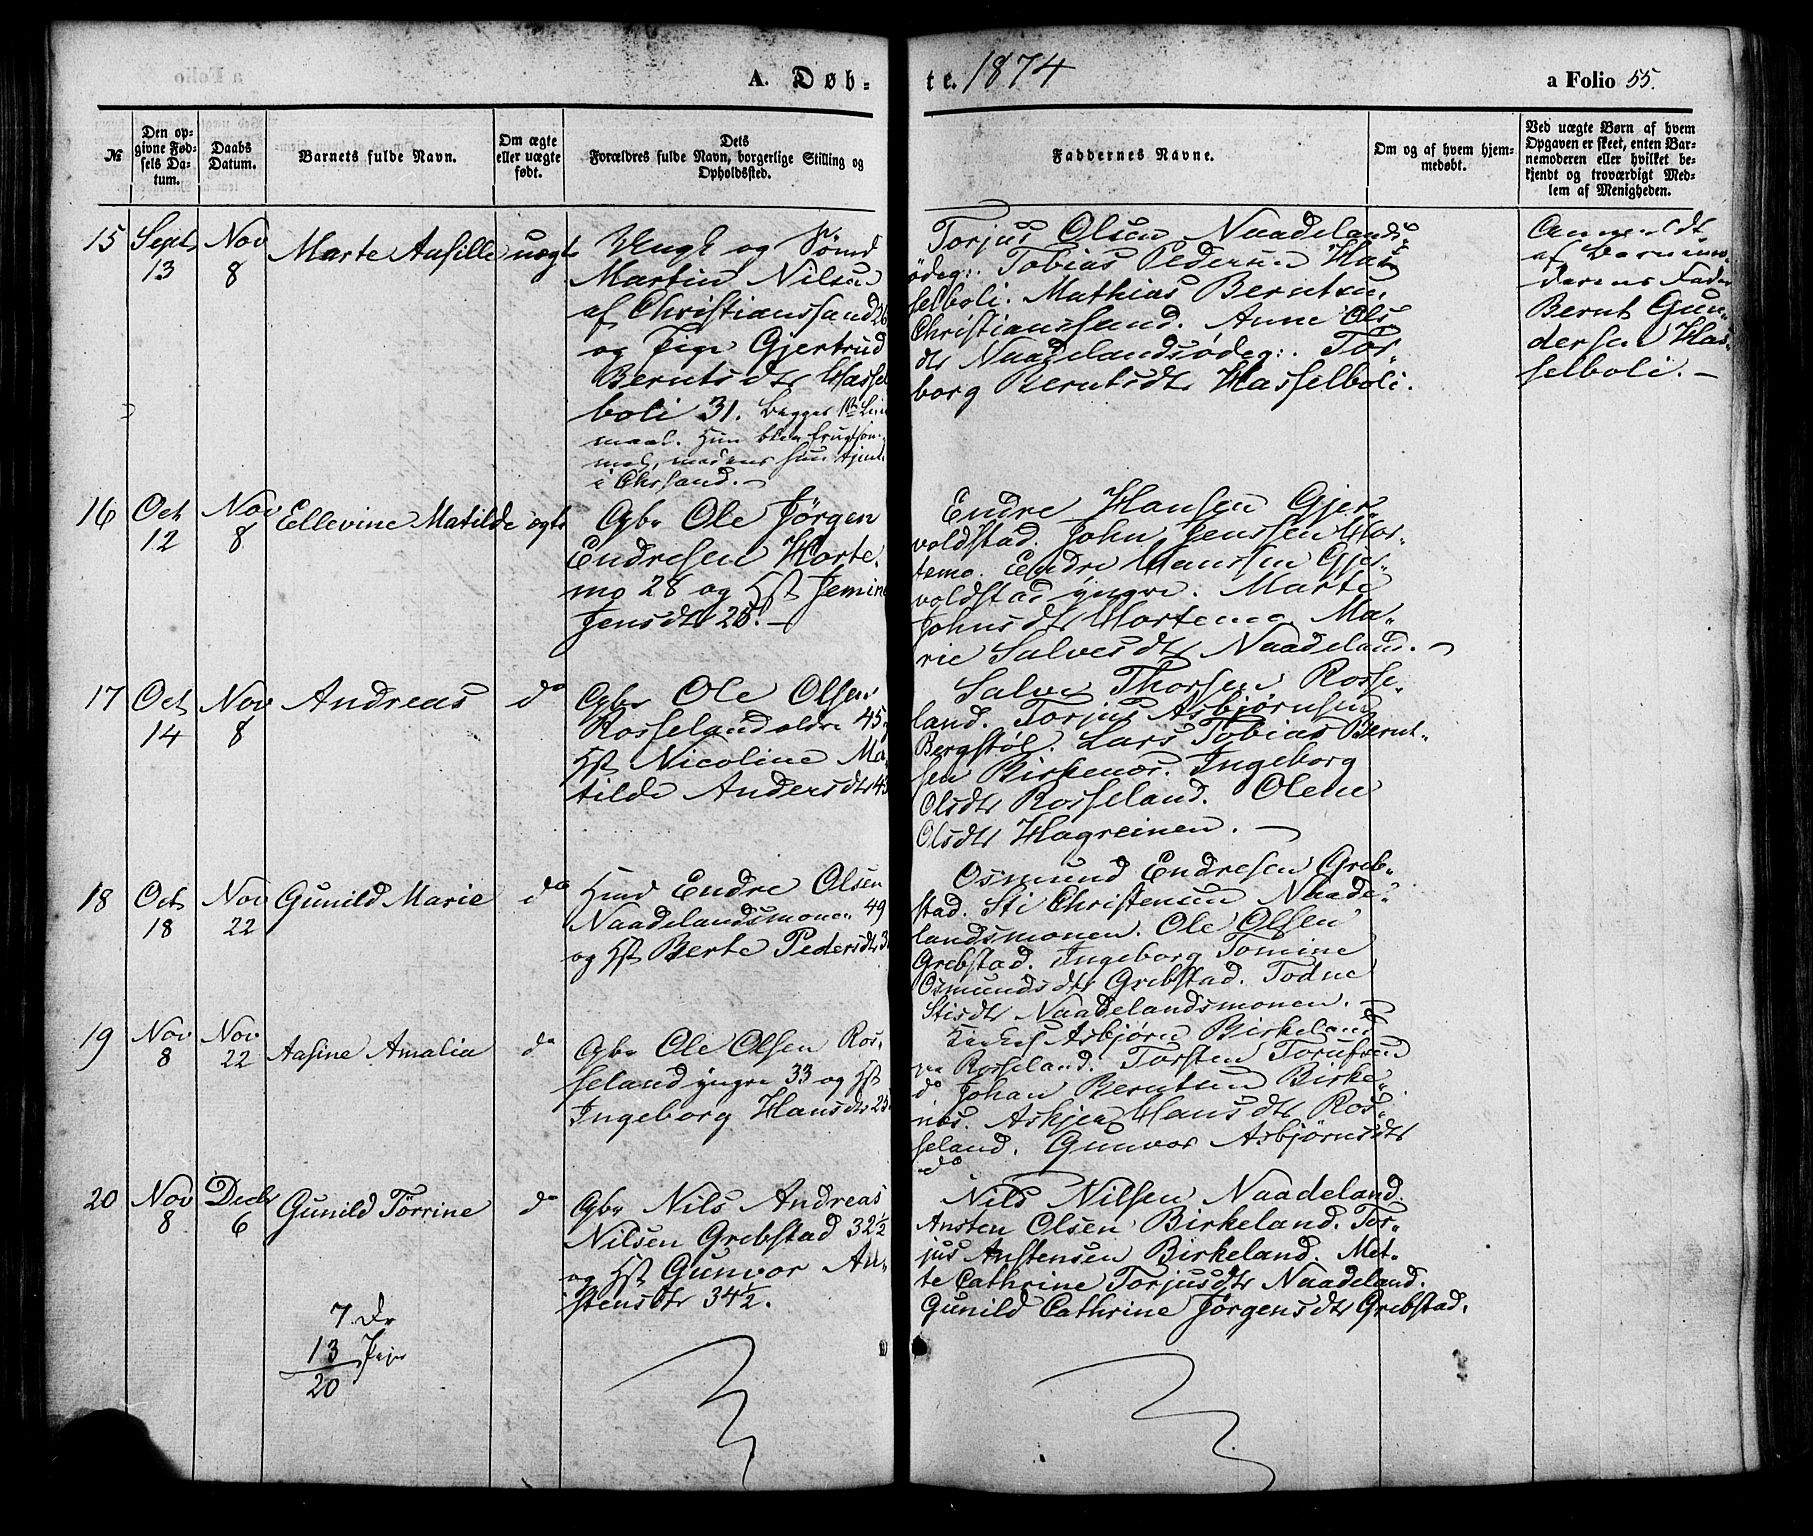 A. Døb-
te. 1874
a Folio 55.
№
Den op-
givne Fød-
sels Da-
tum.
Daabs
Datum.
Barnets fulde Navn.
Om ægte
eller uægte
født.
Dets
Forældres fulde Navn, borgerlige Stilling og
Opholdssted.
Faddernes Navne.
Om og af hvem hjem-
medøbt.
Ved uægte Børn af hvem
Opgaven er skeet, enten Bar-
nemoderen eller hvilket be-
kjendt og troværdigt Med-
lem af Menigheden.
15
Sept
13
Nov
8
Marte
uægte
Ungk og Sømd
Martin Nilsen
af Christianssand 26
og Pige Gjertrud
Berntsdtr Hassel
boli 31. Begges 1ste Leier
maal. Hun blev frugtsom-
mel, medens hun tjente
i Chrsand. -
Torjus Olsen Naadelands
ødeg:. Tobias Pedersen Has
selboli. Mathias Berntsen,
Christianssand. Anne Ols
dtr Naadelandsødeg:. Tor-
borg Berntsdtr Hasselboli.
Anmeldt
af Barnemo-
derens Fader
Bernt Gun-
dersen Has-
selboli. -
16
Oct
12
Nov
8
Ellevine Matilde
ægte
Gbr Ole Jörgen
Endresen Horte-
mo 28 og Hst Jemine
Jensdtr 25. -
Endre Hansen Gjer-
voldstad. John Jenssen Hor-
temo. Endre Hanssen Gjer-
voldstad yngre. Marte
Johnsdtr Hortemo. Ma-
rie Salvesdtr Naadeland. -
17
Oct
14
Nov
8
Andreas
do
Gbr Ole Olsen
Rosseland ældre 45 og
Hst Nicoline Ma-
tilde Andersdtr 43
Salve Thorsen Rosse-
land. Torjus Asbjørnsen
Bergstøl. Lars Tobias Bernt-
sen Birkenæs. Ingeborg
Olsdtr Rosseland. Olene
Olsdtr Hagreinen. -
18
Oct
18
Nov
22
Gunild Marie
do
Hmd Endre Olsen
Naadelandsmonen 49
og Hst Berte Pedersdtr
Osmund Endresen Greb-
stad. Sti Christensen Naade-
landsmonen. Ole Olsen
Grebstad. Ingeborg Tomine
Osmundsdtr Grebstad. Todne
Stisdtr Naadelandsmonen. -
19
Nov
8
Nov
22
Aasine Amalia
do
Gbr Ole Olsen Ros-
seland yngre 33 og Hst
Ingeborg Hansdtr 25
Asbjørn Birkeland
Rosseland. Torsten
do Johan Berntsen Birke-
næs. Askjer Hansdtr Ros-
seland. Gunvor Asbjørnsdtr
do
20
Nov
8
Decbr
6
Gunild Törrine
do
Gbr Nils Andreas
Nilsen Grebstad 32½
og Hst Gunvor An-
stensdtr 34½.
Nils Nilsen Naadeland.
Ansten Olsen Birkeland. Tor-
jus Anstensen Birkeland. Met-
te Cathrine Torjusdtr Naadeland.
Gunild Cathrine Jörgensdtr Grebstad.
7 Dr
13 Piger
20